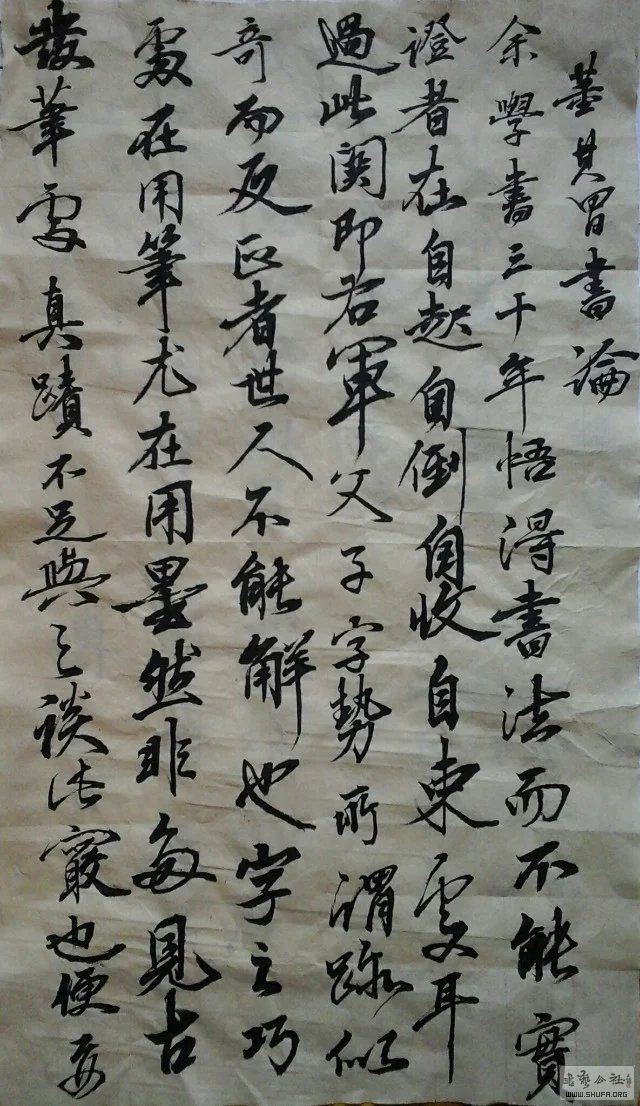 董其昌書論
余學書三十年悟得書法而不能實
證者在自起自倒自收自束處耳
過此關即右軍父子字勢所謂跡似
奇而反正者世人不能解也字之巧
處在用筆尤在用墨然非多見古
發筆處真蹟不足與之談此竅也便要
書藝公社
WWW.SHUFA.ORG